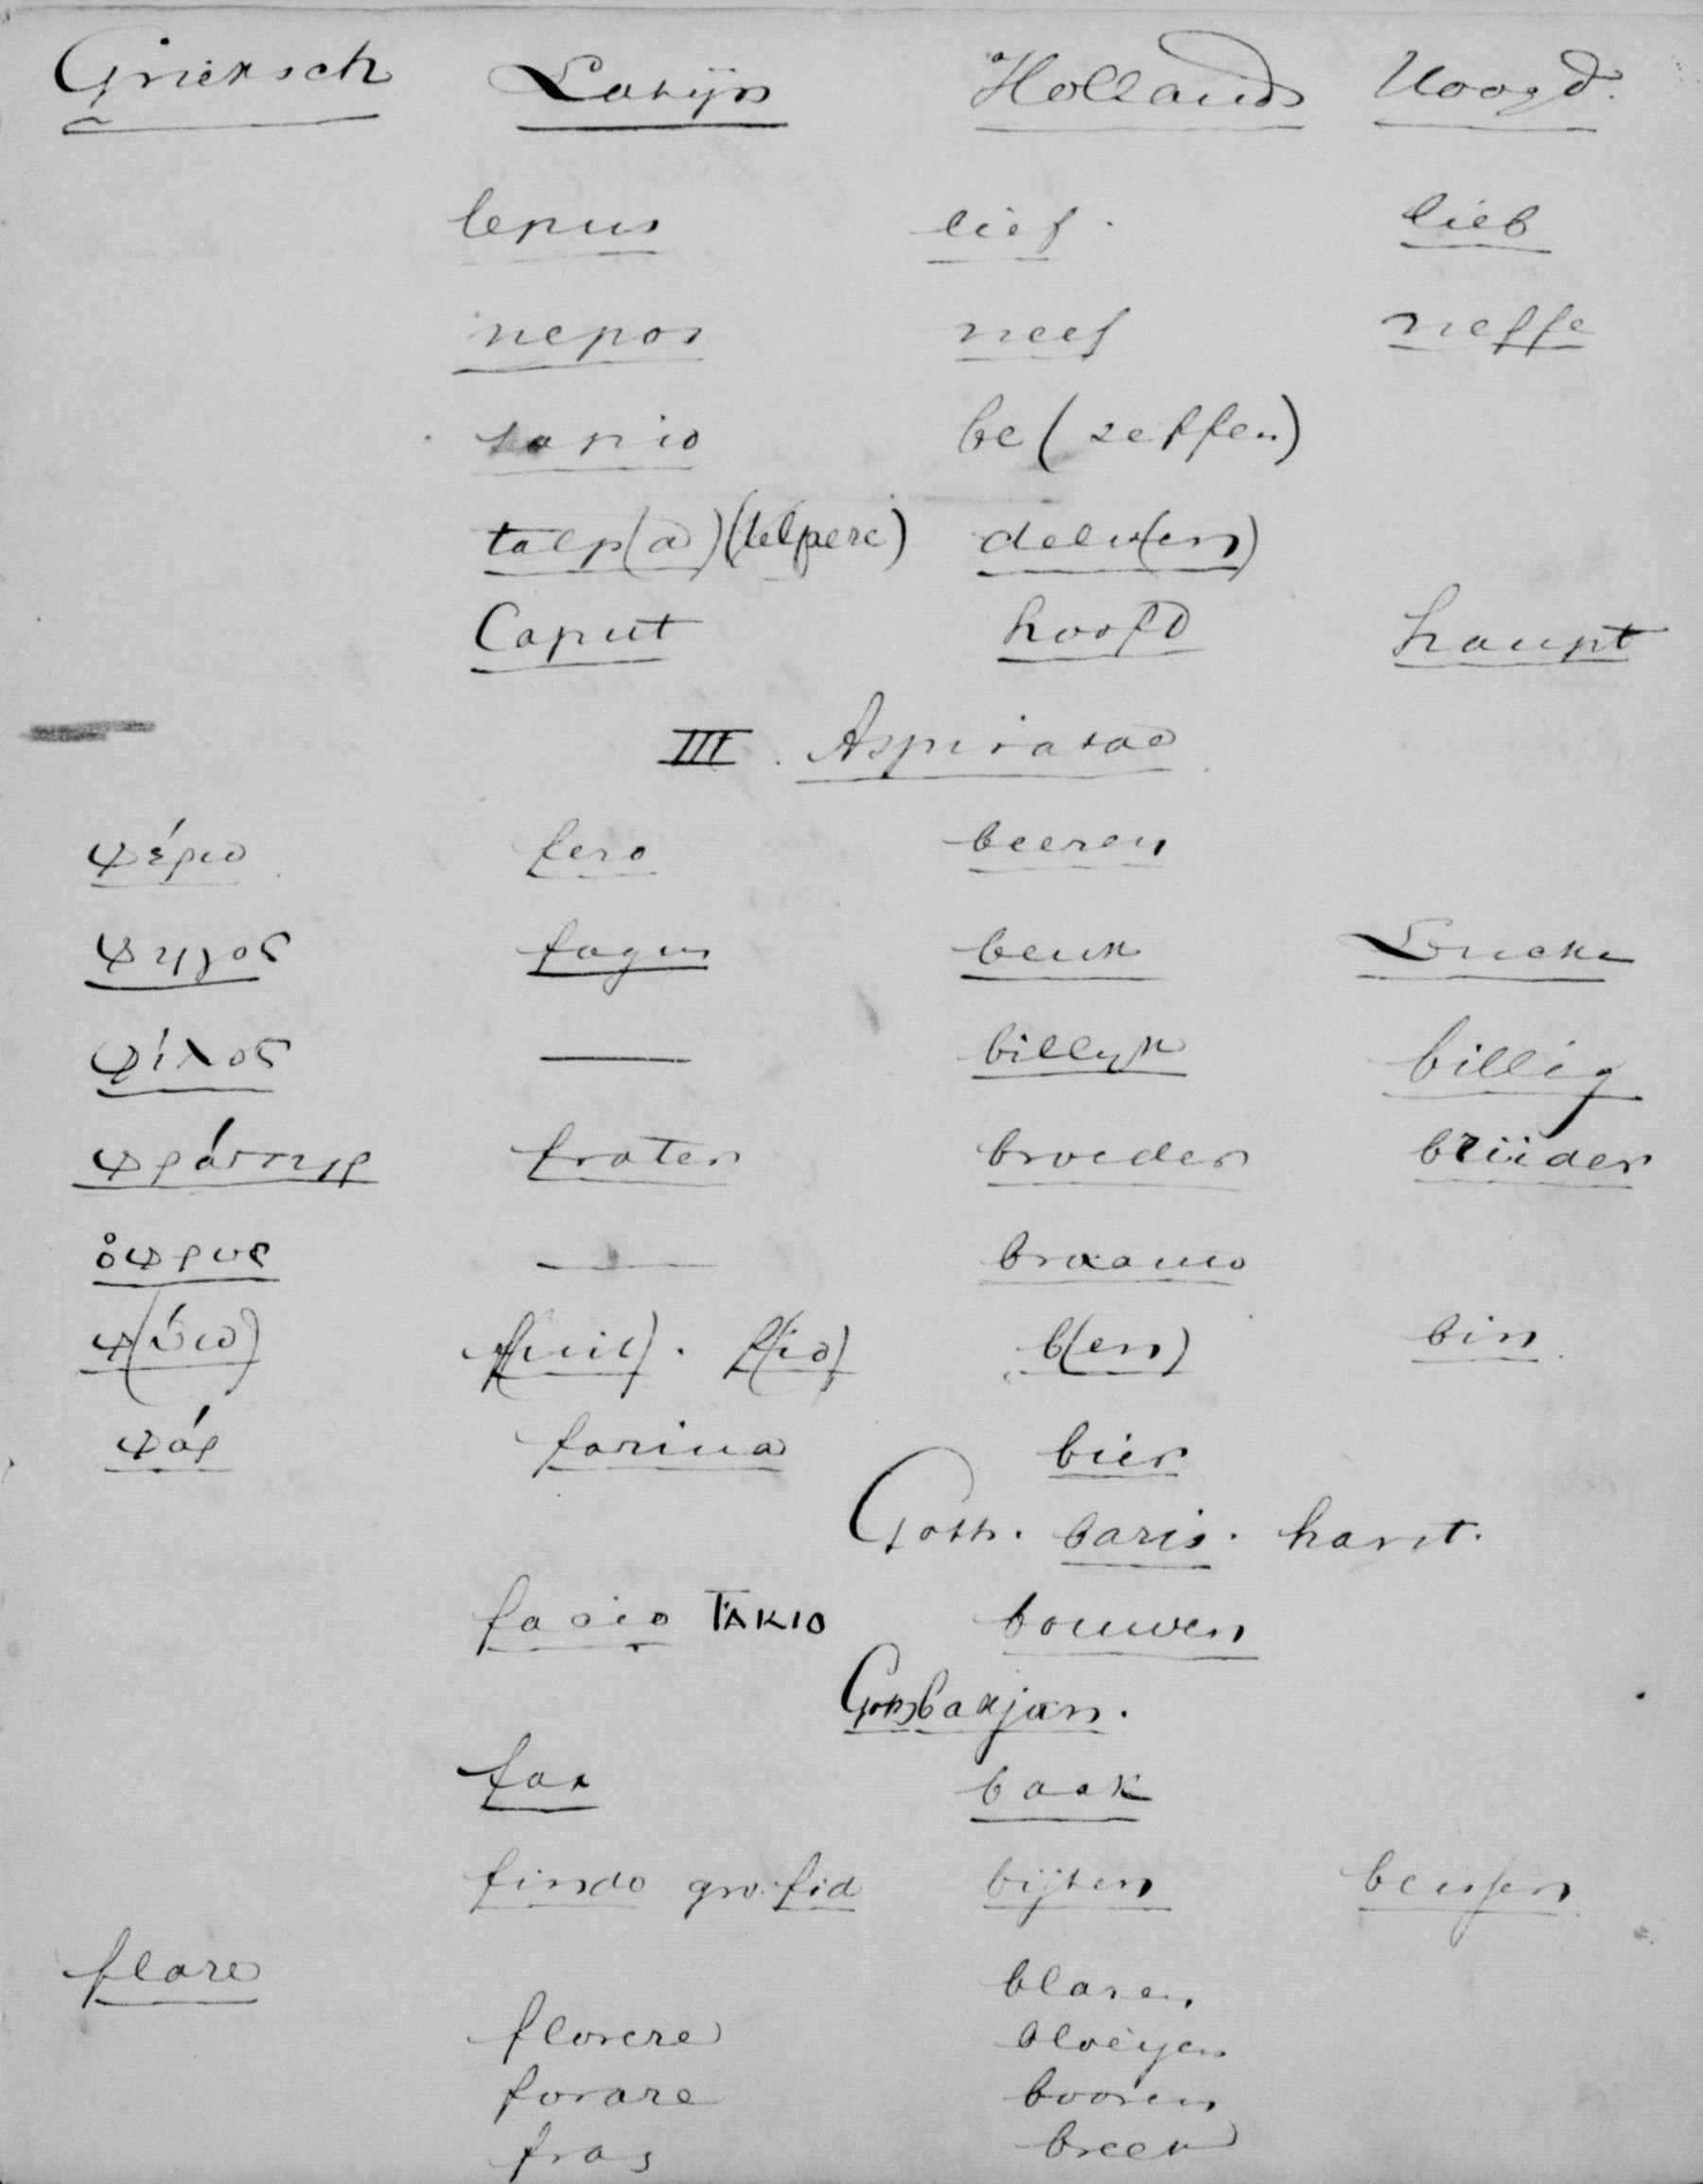 Grieksch Latijn Hollands Hoogd.
lepus lief lieb
nepos neef neffe
sapio be(seffen)
talp(a)(telpere) delv(en)
Caput hoofd haupt
III. Aspiratae
φέρω fero beeren
φηγος fagus beuk Buche
φίλος — billyk billig
φράττηρ frater broeder brüder
ὀφρυς — braauw
φ(ύω) f(uit). f(io) b(en) bin
φάρ farina bier
Goth. baris. harst.
facio ΓΑΚΙΟ bouwen
Goth bakjan.
fax baak
findo grw. fid bijten beissen
flare blasen
florere bloeijen
forare booren
frag breek